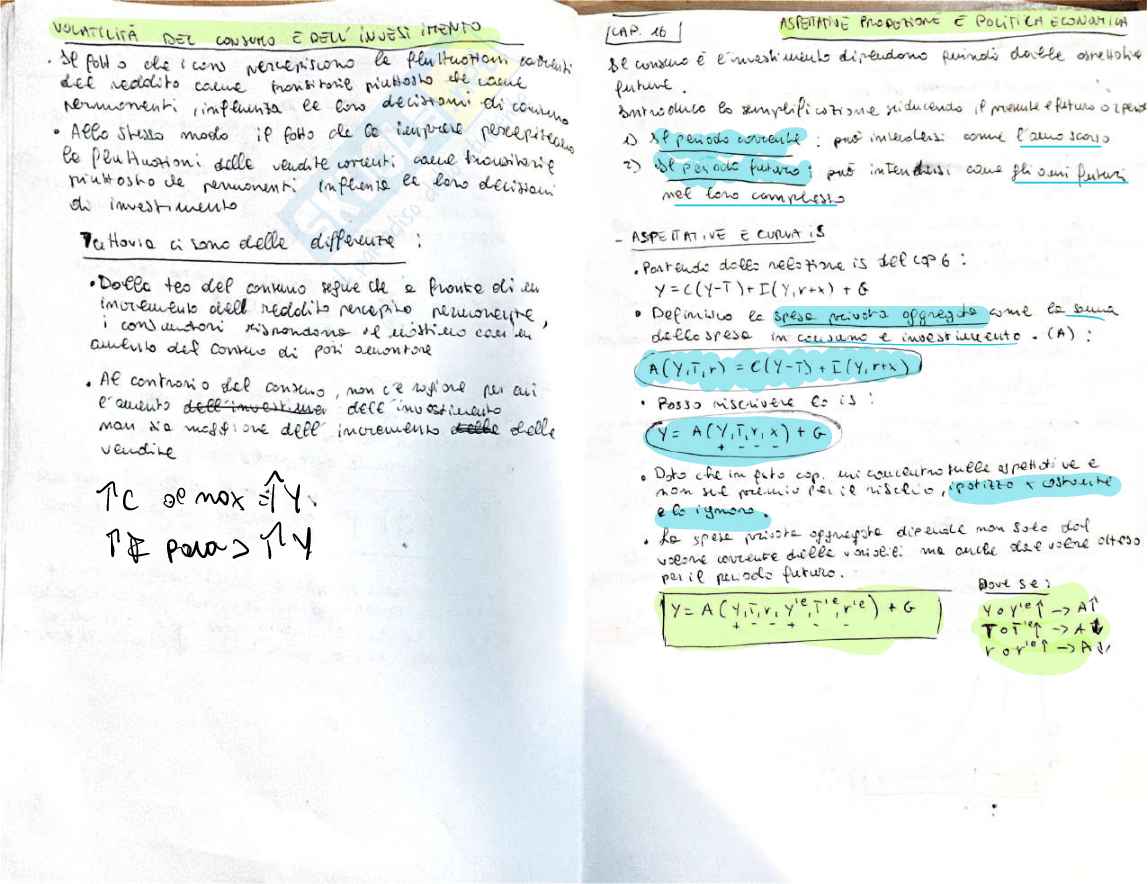 VOLATILITÀ DEL CONSUMO E DELL'INVESTIMENTO
• Il fatto che i cons percepiscono le fluttuazioni correnti
del reddito come transitorie piuttosto che come
permanenti, influenza le loro decisioni di consumo
• Allo stesso modo il fatto che le imprese percepiscano
le fluttuazioni delle vendite correnti come transitorie
piuttosto che permanenti influenza le loro decisioni
di investimento
Tuttavia ci sono delle differenze :
• Dalla teo del consumo segue che a fronte di un
incremento del reddito percepito permanente,
i consumatori rispondono al massimo con un
aumento del consumo di pari ammontare
• Al contrario del consumo, non c'è ragione per cui
l'aumento dell'investimen dell'investimento
non sia maggiore dell'incremento delle delle
vendite
↑C al max = ↑Y.
↑I > ↑Y
CAP. 16
ASPETTATIVE PRODUZIONE E POLITICA ECONOMICA
Il consumo e l'investimento dipendono quindi dalle aspettative
future.
Introduco la semplificazione riducendo il presente e futuro a 2 per
1) Il periodo corrente : può intendersi come l'anno scorso
2) Il periodo futuro : può intendersi come gli anni futuri
nel loro complesso
- ASPETTATIVE E CURVA IS
• Partendo dalla relazione is del cap 6 :
Y = C(Y-T) + I(Y, r+x) + G
• Definisco la spesa privata aggregata come la somma
della spesa in consumo e investimento . (A) :
A(Y,T,r) = C(Y-T) + I(Y, r+x)
• Posso riscrivere la is :
Y = A(Y,T,r,x) + G
+ - - -
• Dato che in questo cap. mi concentro sulle aspettative e
non sul premio per il rischio, ipotizzo x costante
e lo ignoro.
• La spesa privata aggregata dipende non solo dal
valore corrente delle variabili ma anche dal valore atteso
per il periodo futuro.
Y = A(Y,T,r,Y'e,T'e,r'e) + G
+ - - + - -
Dove se :
Y o Y'e ↑ → A ↑
T o T'e ↑ → A ↓
r o r'e ↑ → A ↓